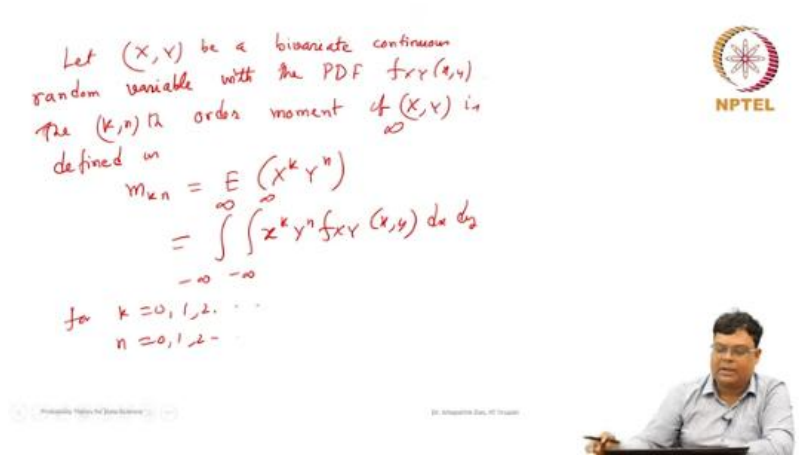 Let (X, Y) be a bivareate continuous
random variable with the PDF fxy(x,y)
The (k,n)th order moment of (X,Y) is
defined as
m_kn = E (X^k Y^n)
= ∫_{-∞}^{∞} ∫_{-∞}^{∞} x^k y^n f_XY (x,y) dx dy
for k = 0, 1, 2. . .
n = 0, 1, 2 -
NPTEL
Probability Theory for Data Science